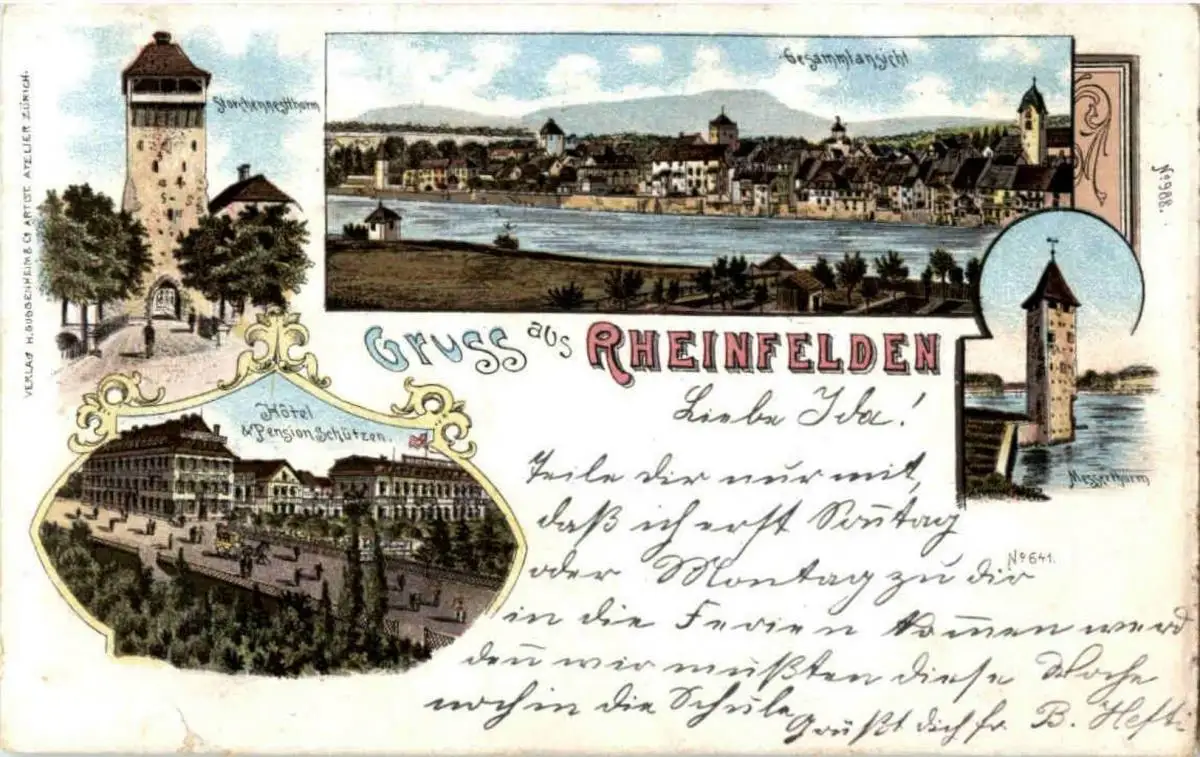 VERLAG H. GUGGENHEIM & Co ARTIST. ATELIER ZÜRICH.
Storchennestthurm
Gesammtansicht
No 988.
Gruss aus RHEINFELDEN
Messerthurm
Hôtel
& Pension Schützen.
No 641.
Liebe Ida!
Teile dir nur mit,
daß ich erst Sontag
oder Montag zu dir
in die Ferien kom̄en werd
den̄ wir mußten diese Woche
noch in die Schule
Grüßt dich fr. B. Hefti